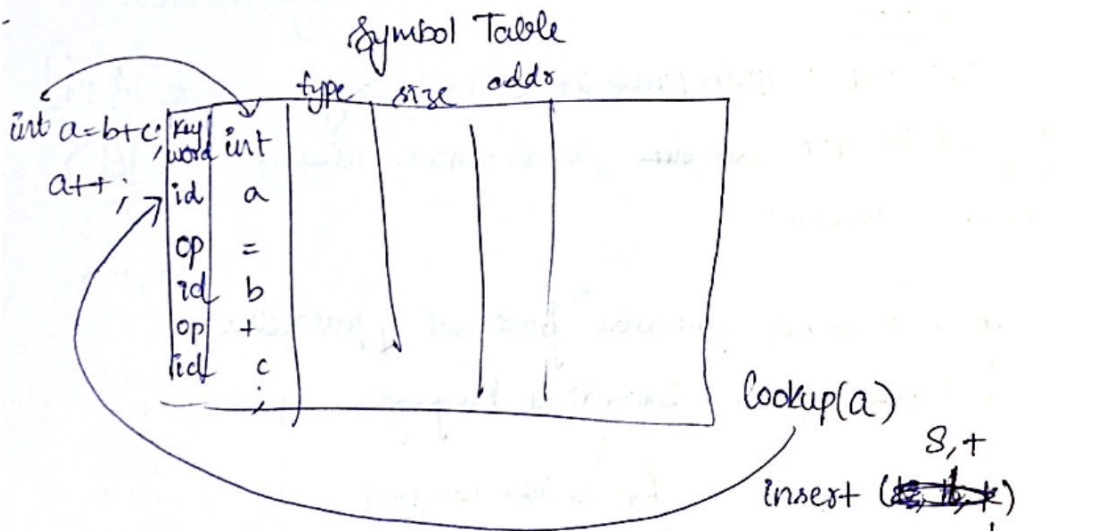 Symbol Table
type size addr
int a=b+c; key word int
a++; id a
op =
id b
op +
id c
;
lookup(a)
s,t
insert ( )